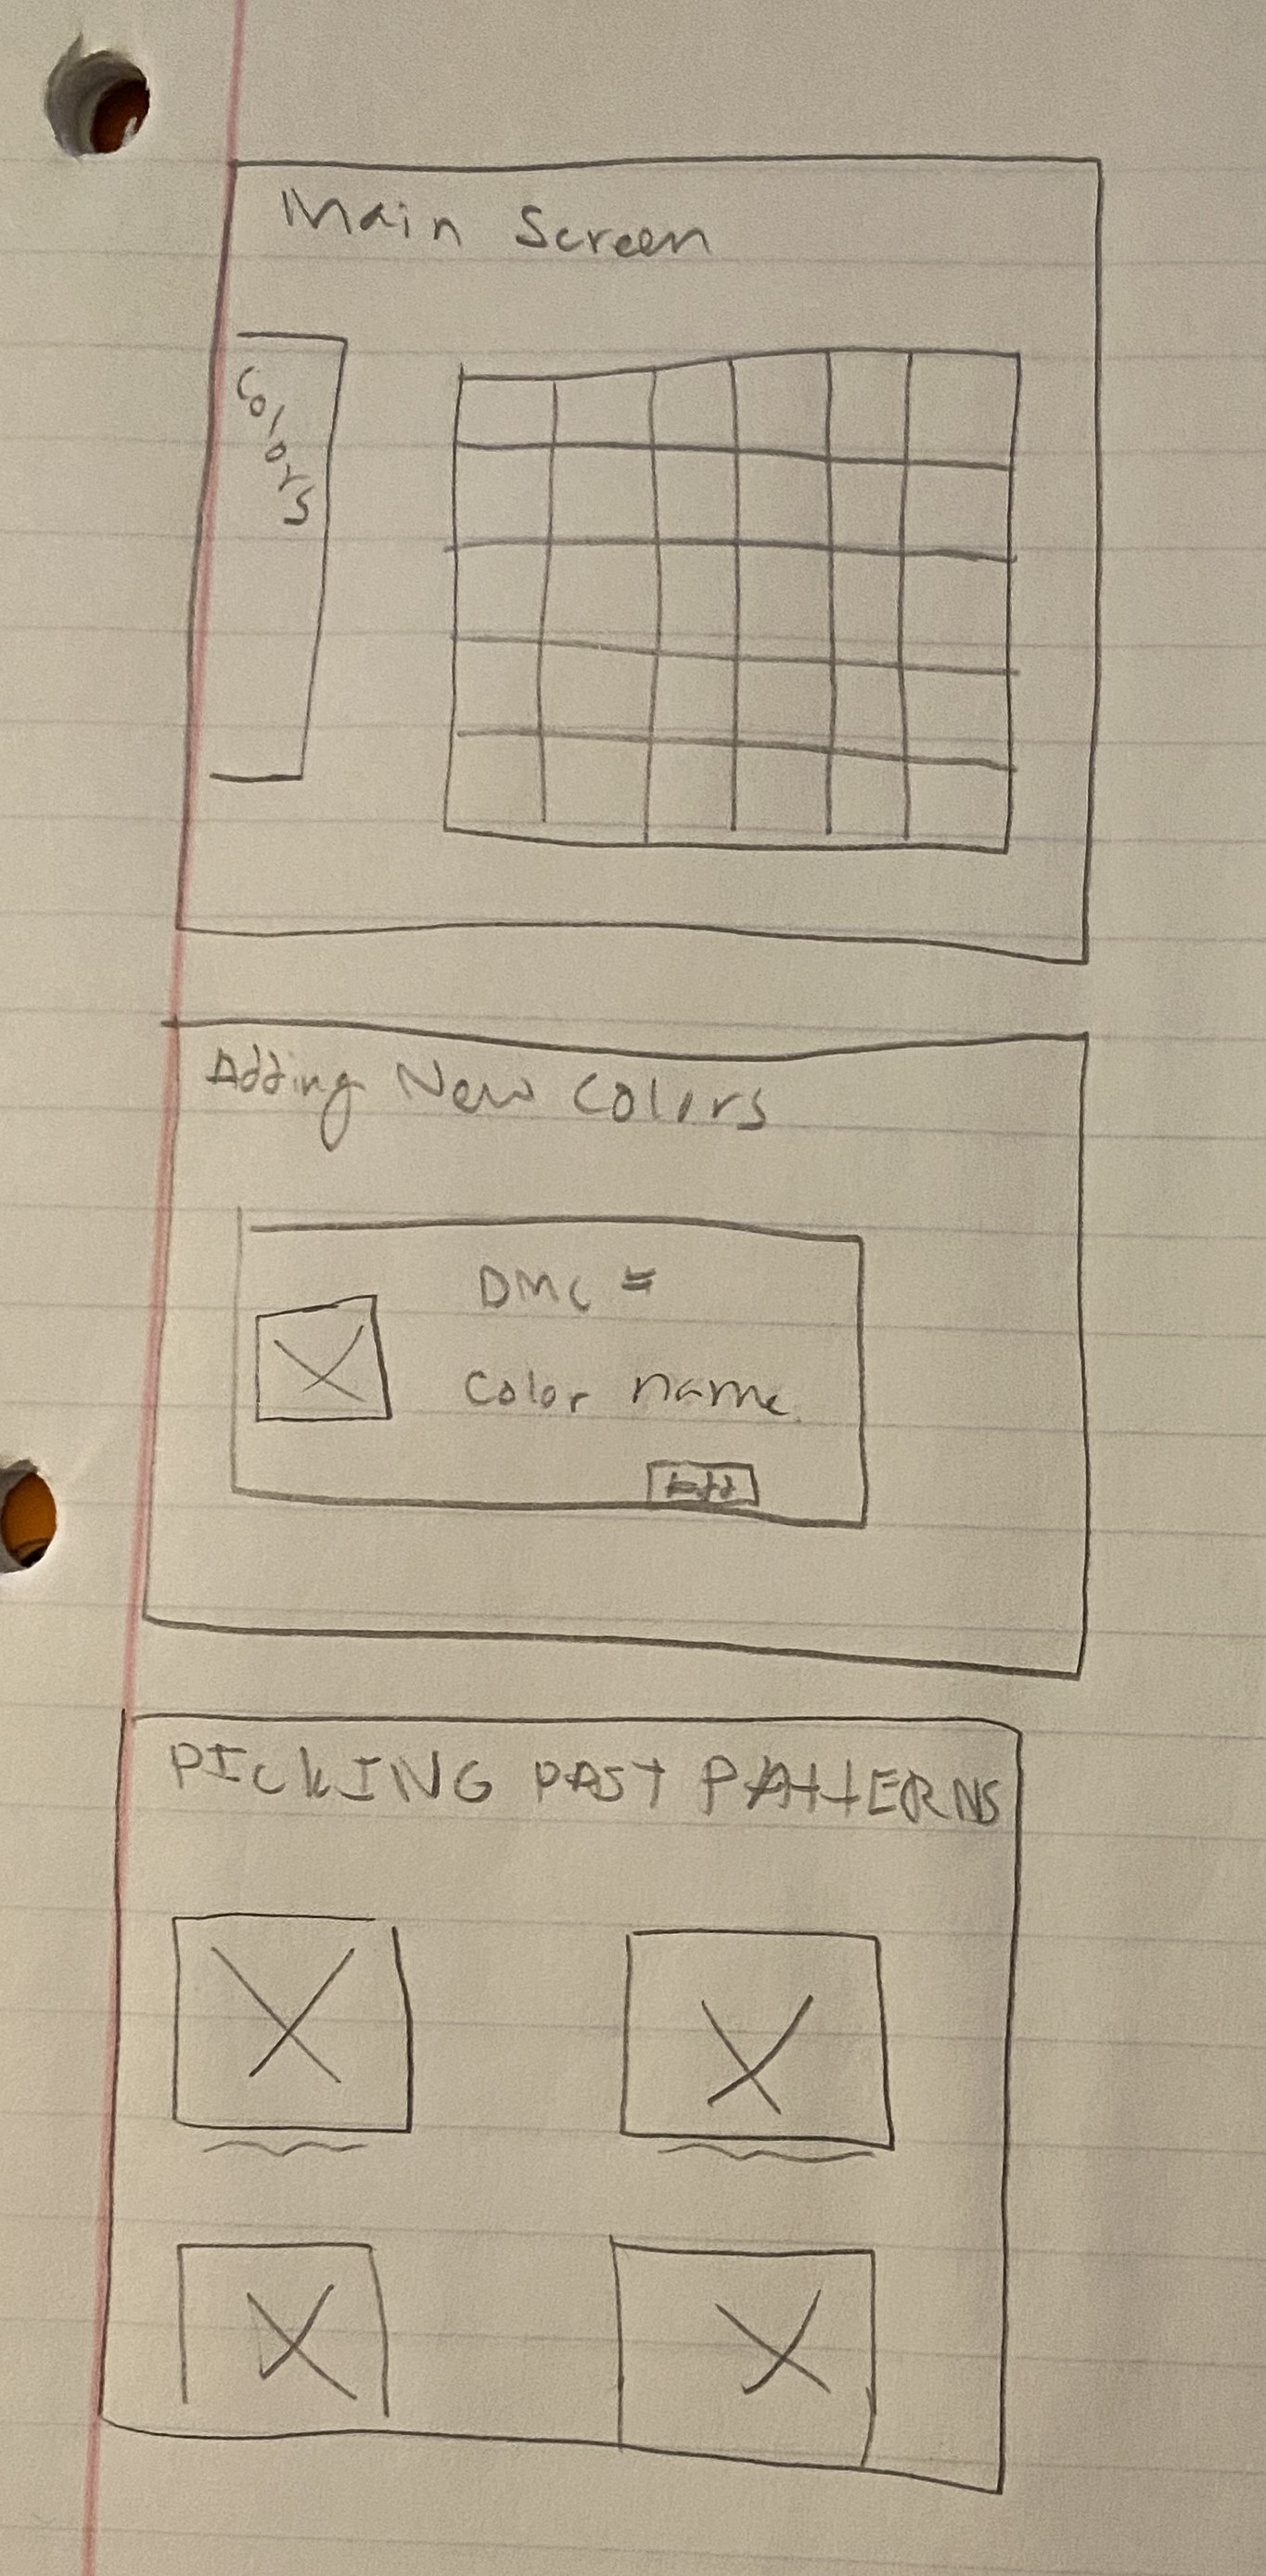 Main Screen
Colors
Adding New Colors
DMC #
Color name
Add
PICKING PAST PATTERNS